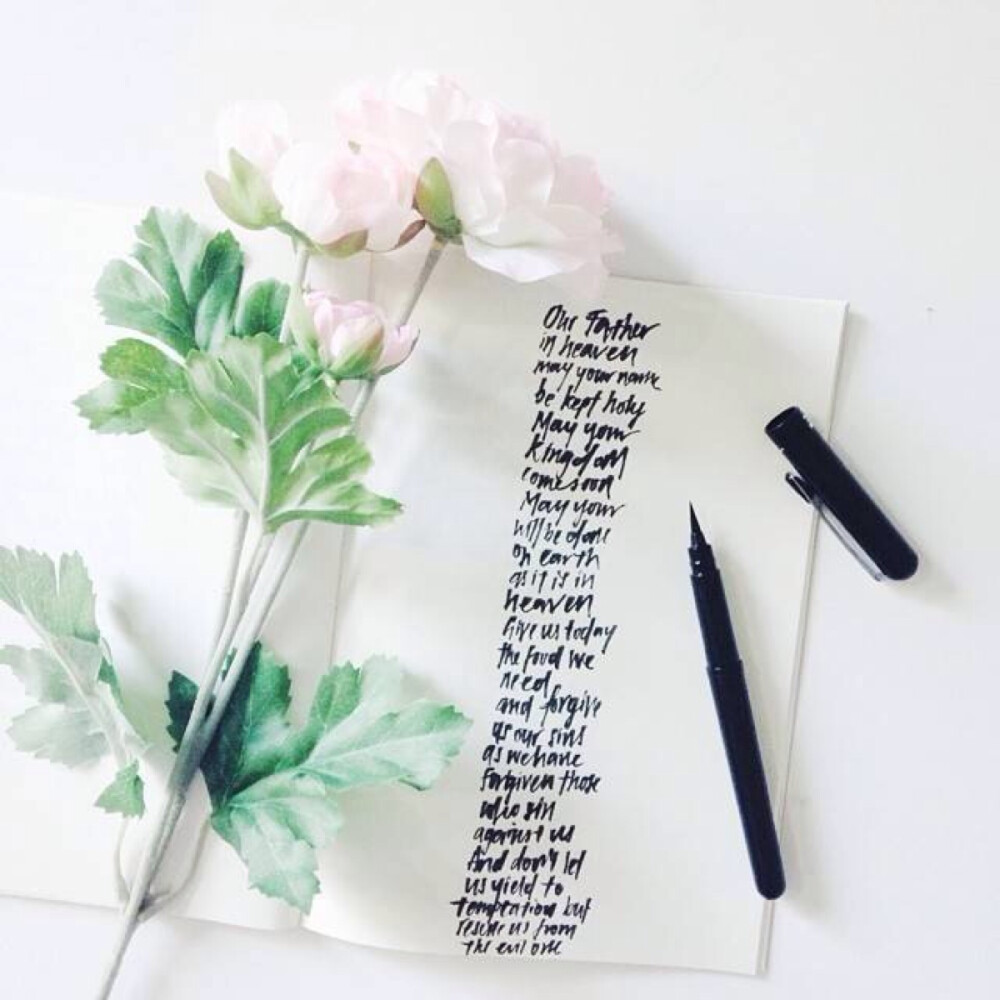 Our Father
in heaven
may your name
be kept holy
May your
Kingdom
come soon
May your
will be done
on earth
as it is in
heaven
Give us today
the food we
need
and forgive
us our sins
as we have
forgiven those
who sin
against us
And don't let
us yield to
temptation but
rescue us from
the evil one